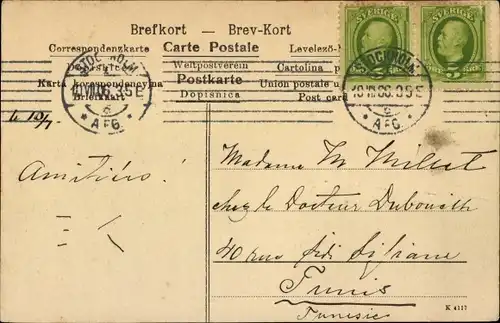 Brefkort — Brev-Kort
Correspondenzkarte Carte Postale Levelező-
Weltpostverein Cartolina
Karta korespondencyjna Postkarte Union postale
Briefkart Dopisnica Post card
SVERIGE SVERIGE
5 5
STOCKHOLM
AFG.
STOCKHOLM
AFG.
Amitiés!
Madame M Millet
chez le Docteur
40 rue Sidi
Tunis
Tunisie
K 4117